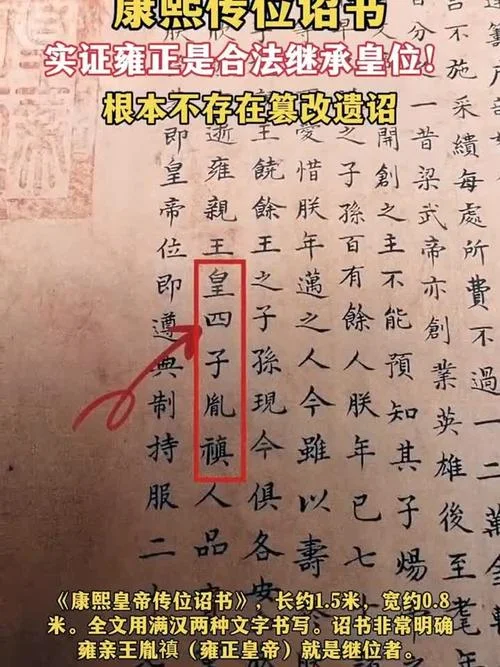 康熙传位诏书
实证雍正是合法继承皇位!
根本不存在篡改遗诏
不施采績每處所費不過一二萬
一昔梁武帝亦創業英雄後至耄
開創之主不能預知其子煬
之子孫百有餘人朕年已七
愛惜朕年邁之人今雖以壽
王饒餘王之子孫現今俱各安
逝雍親王皇四子胤禛人品
即皇帝位即遵典制持服二
《康熙皇帝传位诏书》，长约1.5米，宽约0.8
米。全文用满汉两种文字书写。诏书非常明确
雍亲王胤禛（雍正皇帝）就是继位者。